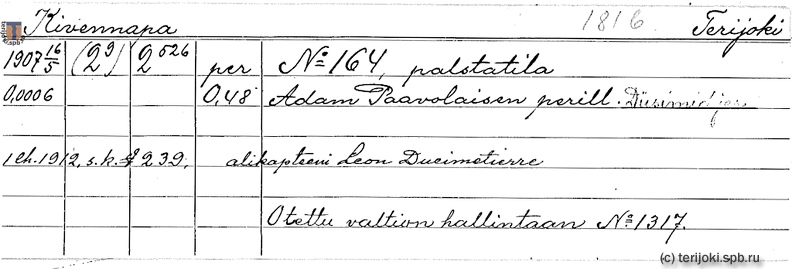 Kivennapa 1816 Terijoki
1907 16/5 (29) 2526 per No 164, palstatila
0,0006 0,48 Adam Paavolaisen perill.
1 eh. 1912, s.k. § 239. alikapteeni Leon Ducimetierre
Otettu valtion hallintaan No 1317.
(c) terijoki.spb.ru